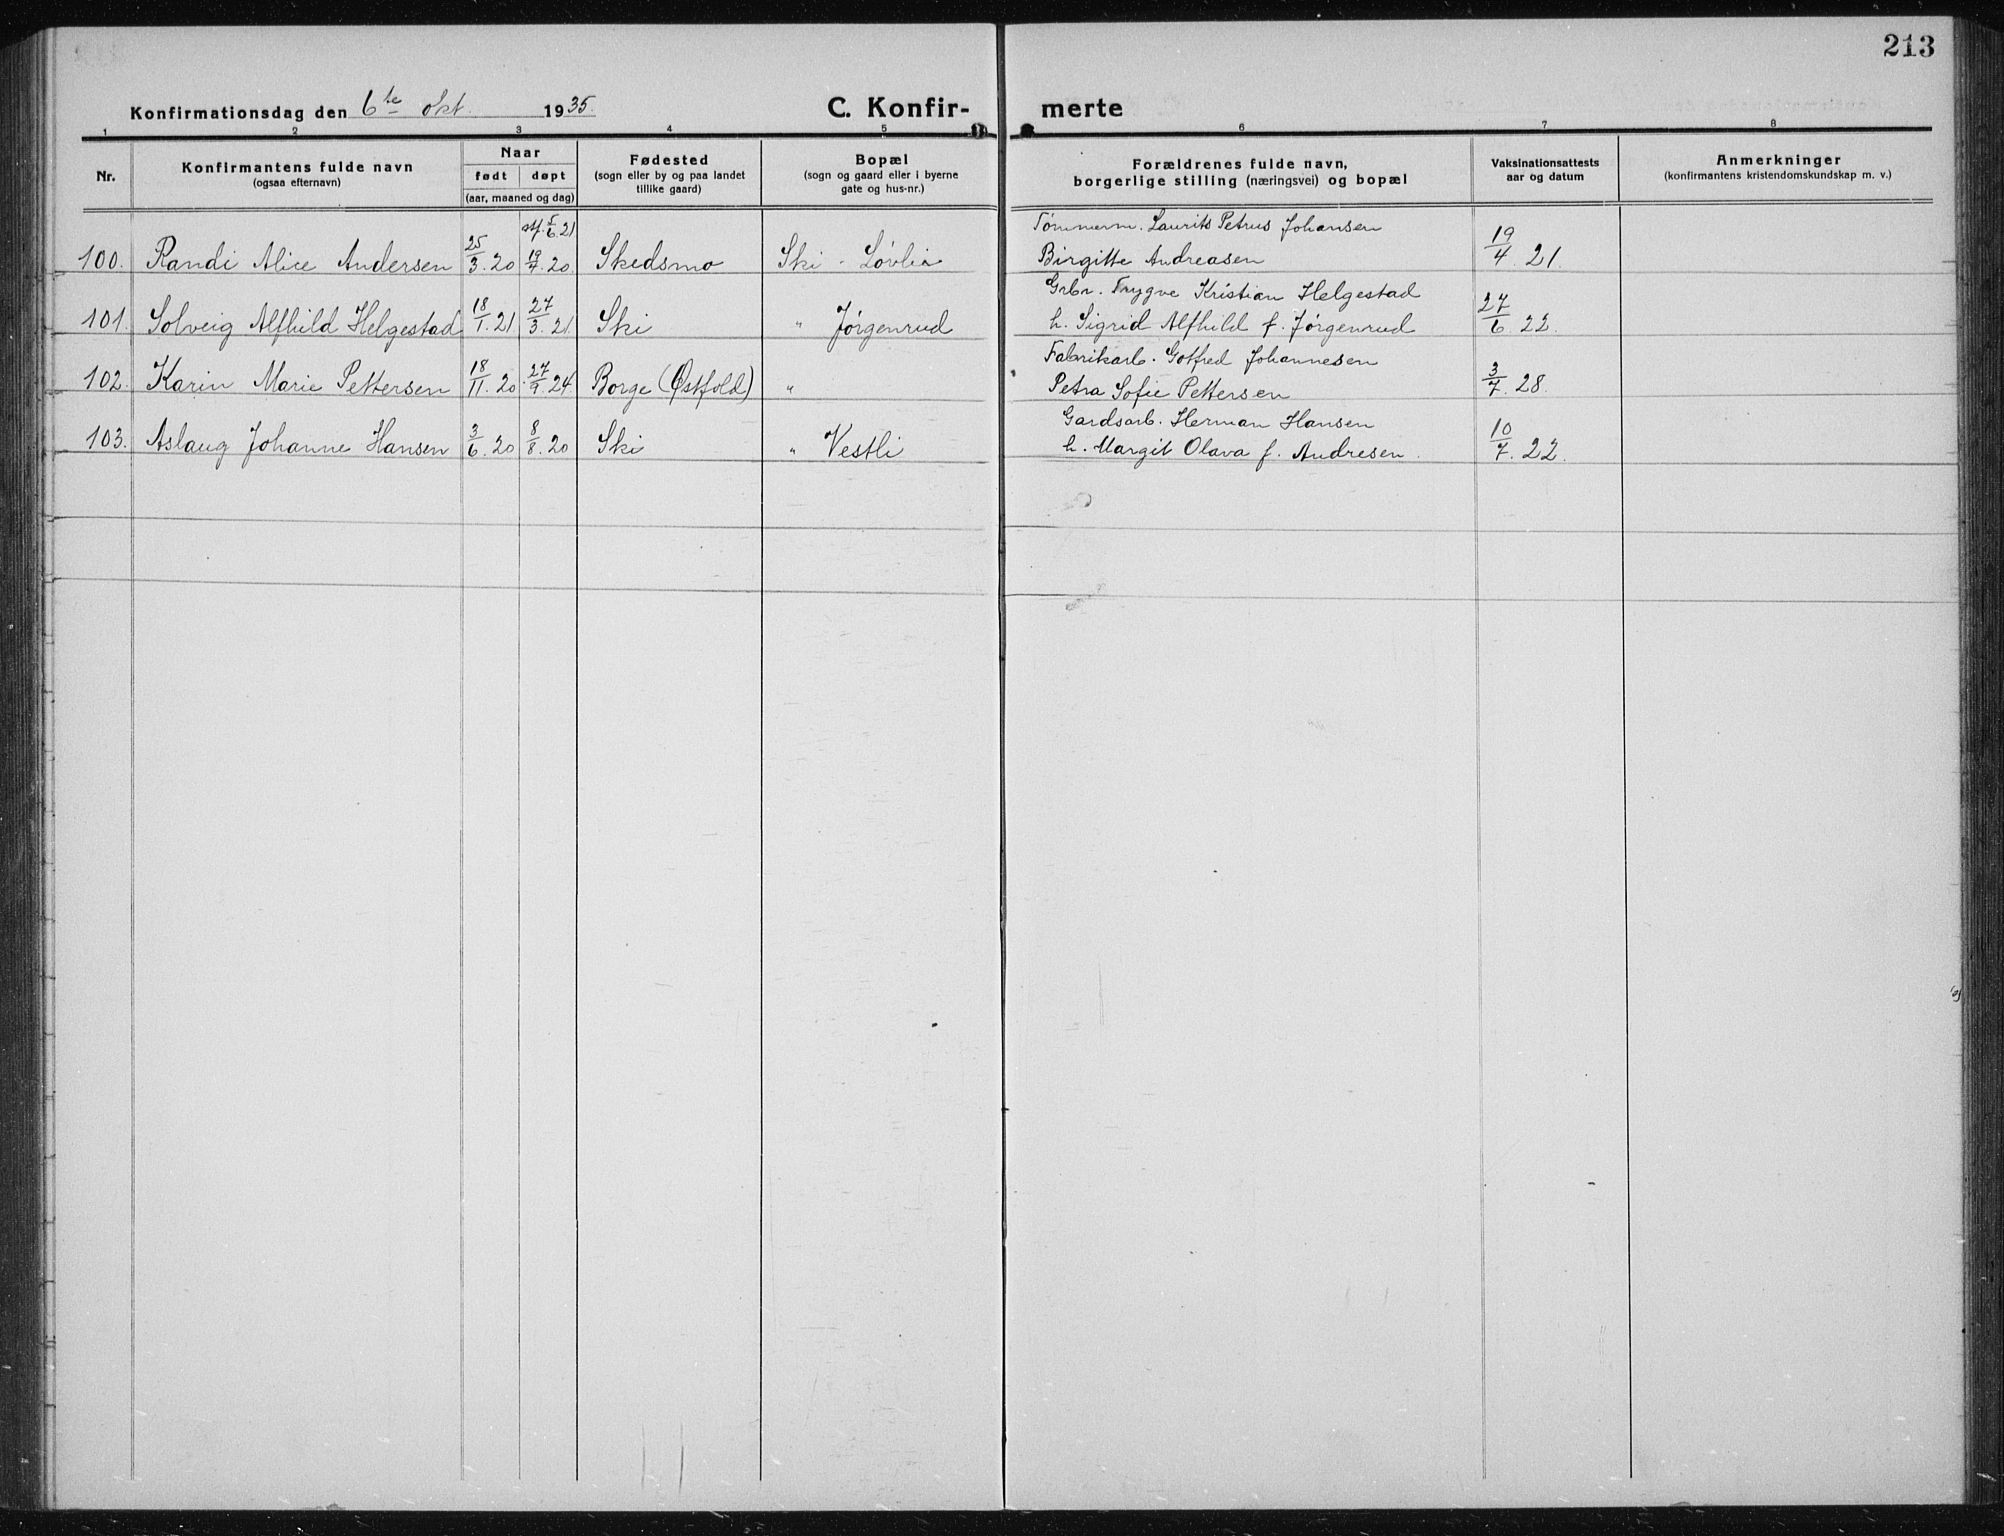 213
Konfirmationsdag den 6te okt. 1935.
C. Konfir-merte
1 2 3 4 5 6 7 8
Nr.
Konfirmantens fulde navn
(ogsaa efternavn)
Naar
født døpt
(aar, maaned og dag)
Fødested
(sogn eller by og paa landet
tillike gaard)
Bopæl
(sogn og gaard eller i byerne
gate og hus-nr.)
Forældrenes fulde navn,
borgerlige stilling (næringsvei) og bopæl
Vaksinationsattests
aar og datum
Anmerkninger
(konfirmantens kristendomskundskap m. v.)
5/6.21 Tømmerm. Laurits Petrus Johansen
100. Randi Alice Andersen 25/3.20 19/7.20. Skedsmo Ski - Løvlia Birgitte Andreasen 19/4.21.
Grbr. Trygve Kristian Helgestad
101. Solveig Alfhild Helgestad 18/1.21 27/3.21 Ski " Jørgenrud h. Sigrid Alfhild f. Jørgenrud 27/6.22.
Fabrikarb. Gotfred Johannesen
102. Karin Marie Pettersen 18/11.20. 27/9.24. Borge (Østfold) " Petra Sofie Pettersen 3/7.28.
Gardsarb. Herman Hansen
103. Aslaug Johanne Hansen 3/6.20 8/8.20 Ski " Vestli h. Margit Olava f. Andresen. 10/7.22.